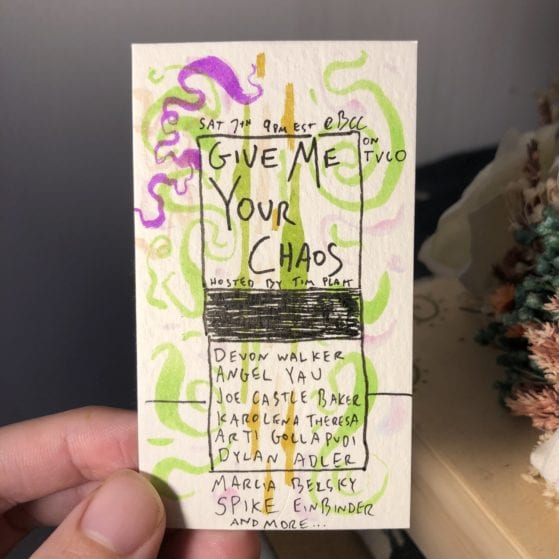 SAT 7TH 9PM EST @BCC
ON
TVCO
GIVE ME
YOUR
CHAOS
HOSTED BY TIM PLATT
DEVON WALKER
ANGEL YAU
JOE CASTLE BAKER
KAROLENA THERESA
ARTI GOLLAPUDI
DYLAN ADLER
MARCIA BELSKY
SPIKE EINBINDER
AND MORE...